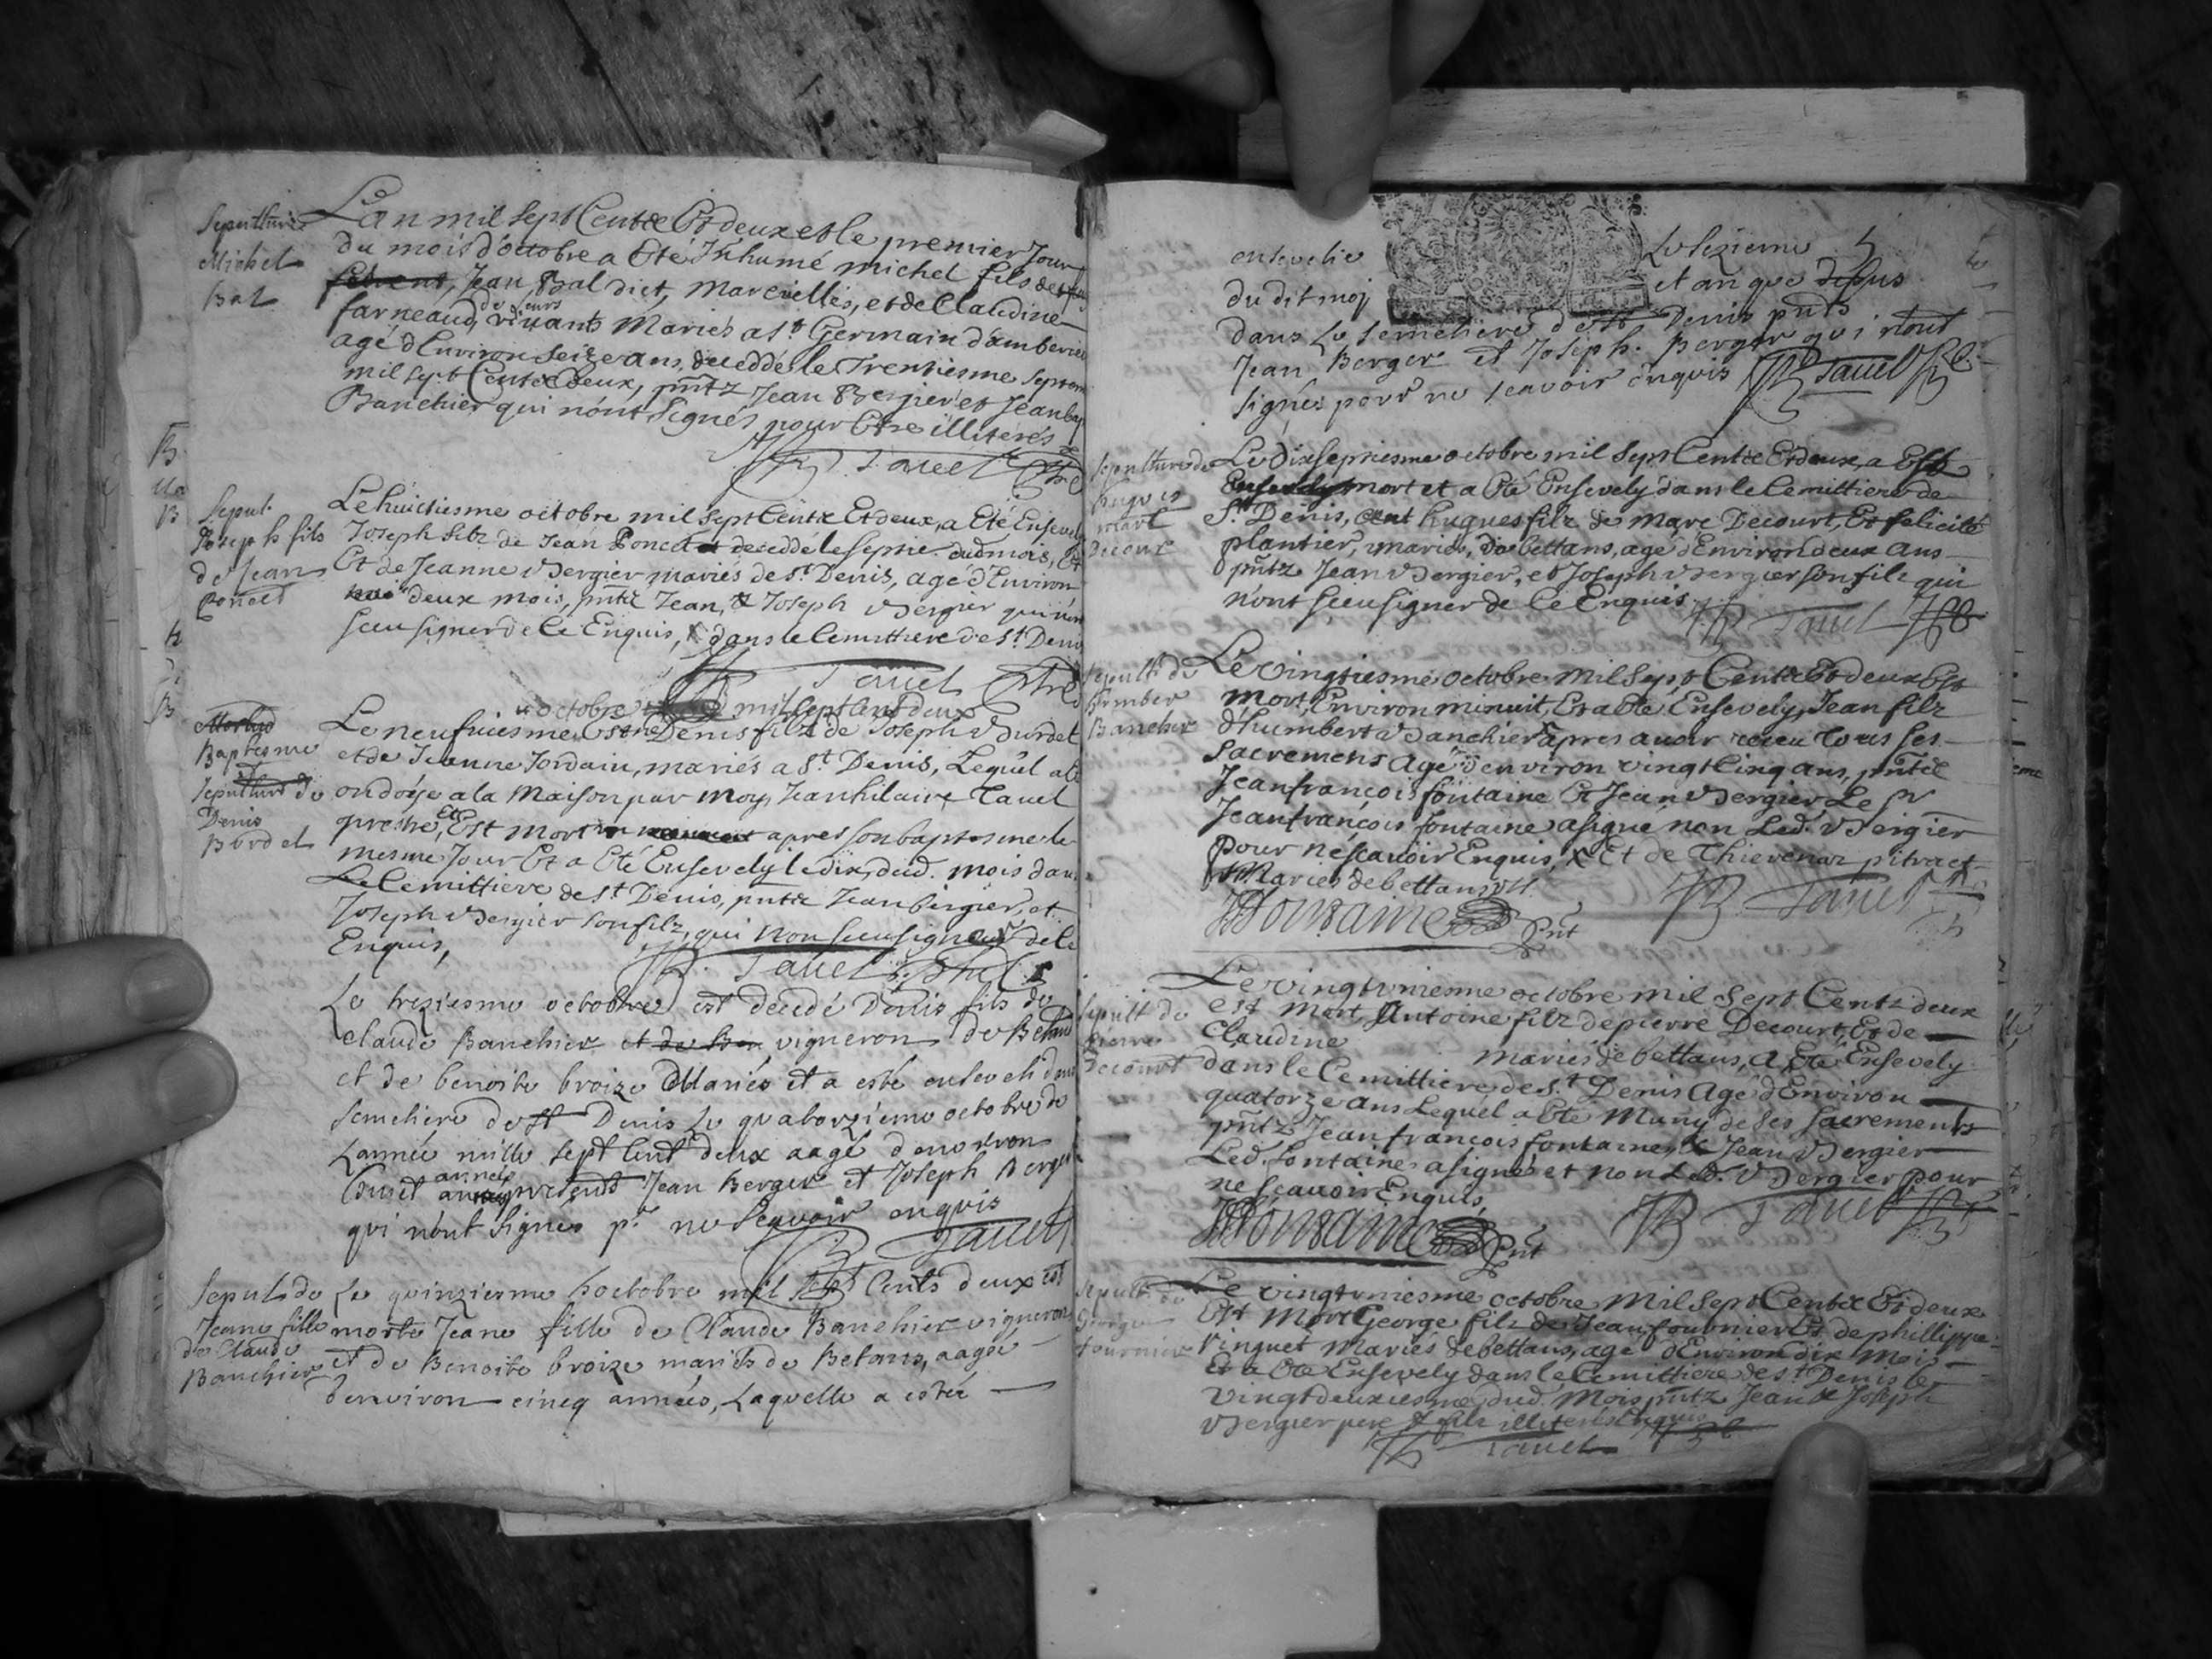 Sepulture
Michel
Bal
L'an mil sept Centz Et deux et le premier Jour
du mois d'octobre a Eté Inhumé michel fils de
Jean Bal dict, Marcellies, et de Claudine
farneaud, vivants Mariés a st. Germain d'amberieu
agé d'Environ seize ans, deceddé le Trentiesme septem
mil sept Centz deux, pntz Jean Bergier et Jean
Banchier qui n'ont Signés pour Etre illiterés
Tavel
Sepul.
Joseph fils
de Jean
Poncet
Le huictiesme octobre mil sept Centz Et deux, a Eté Ensevel
Joseph filz de Jean Poncet deceddé le septie. dudmois,
Et de Jeanne Vergier mariés de st. Denis, agé d'Environ
deux mois, pntz Jean, & Joseph Vergier qui n'ont
sceu signer de ce Enquis, dans le Cemittiere de st. Denis
Tavel
octobre mil sept cent deux
Baptesme
Sepulture de
Denis
Burdet
Le neufviesme Denis filz de Joseph Vurdet
et de Jeanne Jordain, mariés a st. Denis, Lequel a
ondoye a la Maison par moy, Jean hilaire Tavel
prestre, Et Est mort apres son baptesme le
mesme Jour Et a Eté Ensevely le dix, dud. mois dans
Le Cemittiere de st. Denis, pntz Jean bergier, et
Joseph Vergier son filz, qui non sceu signer de ce
Enquis,
Tavel
Le treziesme octobre est decedé Denis fils de
Claude Banchier et de vigneron de Betans
et de benoite broize Mariés et a esté enseveli dans
semetiere de st Denis Le quatorzieme octobre de
L'année mille sept cent deux aagé d'environ
annes
presents Jean Berger et Joseph Berger
qui n'ont Signés pr. ne scavoir enquis
Tavel
Sepul. de
Jeane fille
de Claude
Banchier
Le quinzieme octobre mil sept cents deux est
morte Jeane fille de Claude Banchier vigneron
et de Benoite broize mariés de Betans, aagée
d'environ cinq années, Laquelle a estée
ensevelie Le sezieme
du dit moi et an que dessus
dans Le semetiere de st Denis pnts
Jean Berger et Joseph Berger qui n'ont
signés pour ne scavoir enquis Tavel
Sepulture de
hugues
marc
Decourt
Le Dixseptiesme octobre mil sept Centz Et deux, a Esté
mort et a Eté Ensevely dans le Cemittiere de
st. Denis, hugues filz de Marc Decourt, Et felicité
plantier, mariés, de bettans, agé d'Environ deux ans
pntz Jean Vergier, et Joseph Vergier son filz qui
n'ont sceu signer de ce Enquis Tavel
Sepult de
humber
Banchier
Le vingtiesme octobre Mil Sept Centz Et deux Est
mort, Environ minuit, Et a Eté Ensevely, Jean filz
d'humbert Vanchier apres avoir receu tous ses
sacrements Agé d'environ vingt Cinq ans, pntz
Jeanfrançois fontaine Et Jean Vergier Le Sr
Jeanfrançois fontaine a signé non Led. Vergier
pour ne scavoir Enquis, & Et de Thievenaz pitract
Mariés de bettans
fontaine pnt Tavel
Sepult de
pierre
Decourt
Le vingt uniesme octobre mil Sept Centz deux
est mort, Antoine filz de pierre Decourt, Et de
Claudine mariés de bettans, a Eté Ensevely
dans le Cemittiere de st Denis Agé d'Environ
quatorze ans Lequel a Eté Muny de ses sacrements
pntz Jean françois fontaine, & Jean Vergier
Led. fontaine a signé et non Led. Vergier pour
ne scavoir Enquis,
fontaine pnt Tavel
Sepult. de
George
fournier
Le vingtuniesme octobre Mil Sept Centz Et deux
Est Mort George filz de Jean fournier Et de phillippe
vinguet Mariés de bettans, agé d'Environ dix Mois
Et a Eté Ensevely dans le Cemittiere de st Denis le
vingtdeuxiesme dud. Mois, pntz Jean & Joseph
Vergier pere & filz illiterés Enquis
Tavel